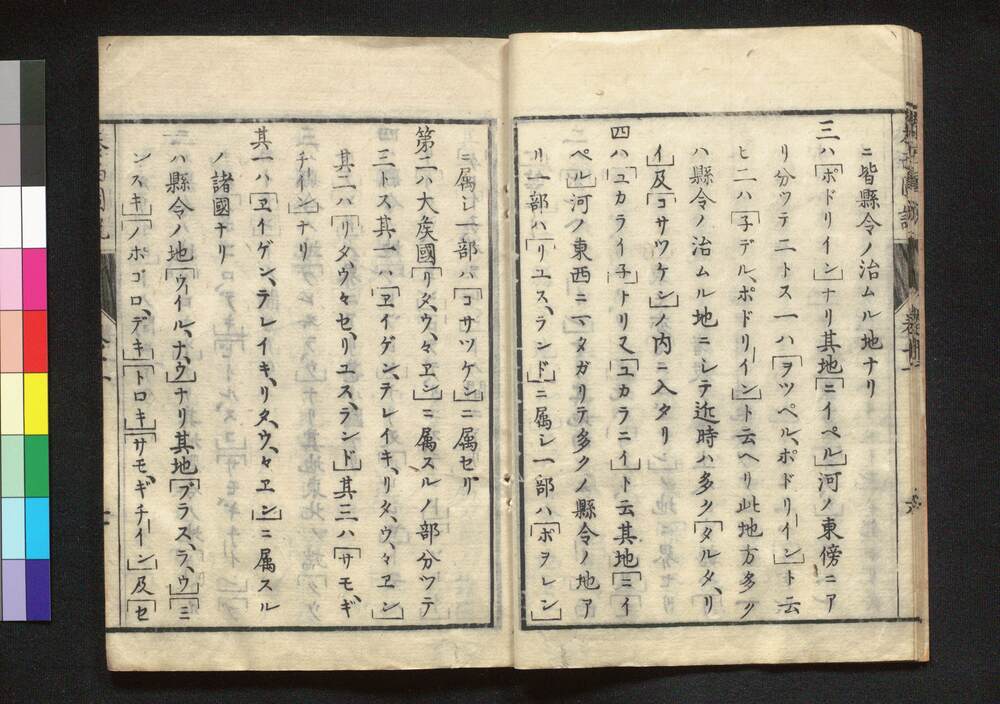 ニ皆縣令ノ治ムル地ナリ
三ハ「ポドリイン」ナリ其地「ニイペル」河ノ東傍ニア
リ分ツテ二トス一ハ「ヲツペル、ポドリイン」ト云
ヒ二ハ「子デル、ポドリイン」ト云ヘリ此地方多ク
ハ縣令ノ治ムル地ニシテ近時ハ多ク「タルタ、リ
イ」及「コサツケン」ノ内ニ入タリ
四ハ「ユカライ子」トリ又「ユカラニイ」ト云其地「ニイ
ペル」河ノ東西ニマタガリテ多クノ縣令ノ地ア
リ一部ハ「リユス、ランド」ニ属シ一部ハ「ポヲレン」
ニ属シ一部ハ「コサツケン」ニ属セリ
第二ハ大矦國「リタ、ウ、々ヱン」ニ属スルノ部分ツテ
三トス其一ハ「ヱイゲン、テレイキ、リタウ、々ヱン」
其二ハ「リタウ々セ、リユス、ランド」其三ハ「サモ、ギ
チイン」ナリ
其一ハ「ヱイゲン、テレイキ、リタ、ウ、々ヱン」ニ属スル
ノ諸國ナリ
一ハ縣令ノ地「ウイル、ナ、ウ」ナリ其地「ブラス、ラ、ウ」「ミ
ンスキ」「ノポゴロ、デキ」「トロキ」「サモギチイン」及「セ